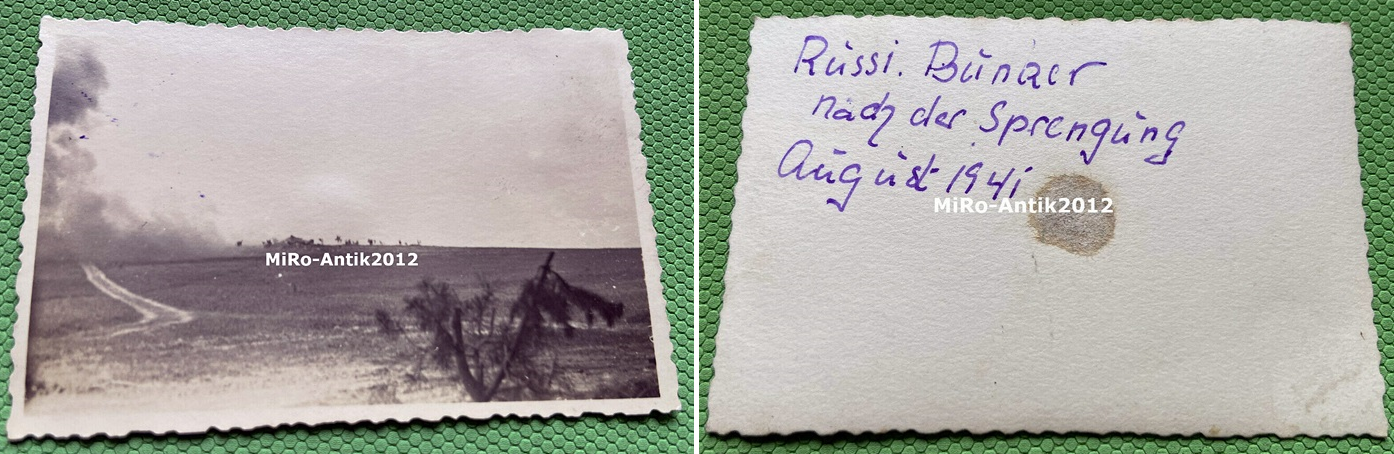 MiRo-Antik2012
Russi. Bunker
nach der Sprengung
August 1941
MiRo-Antik2012